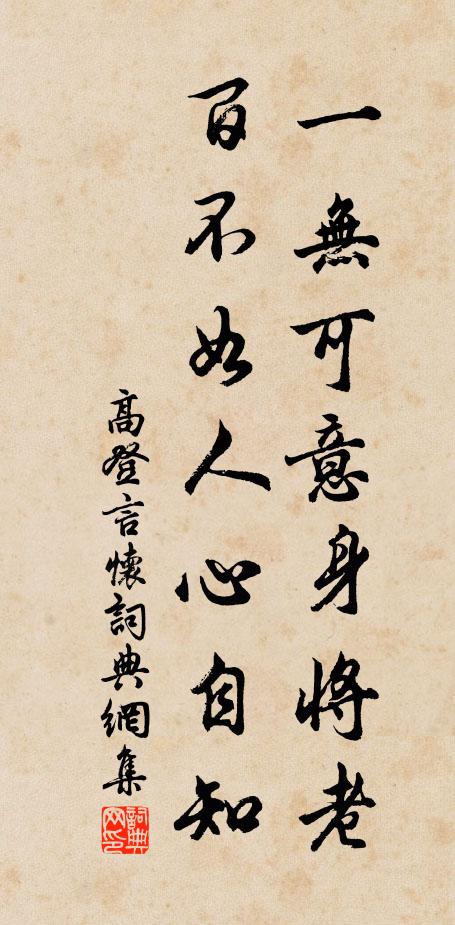 一無可意身將老
百不如人心自知
高登言懷詞典網集
詞典网印